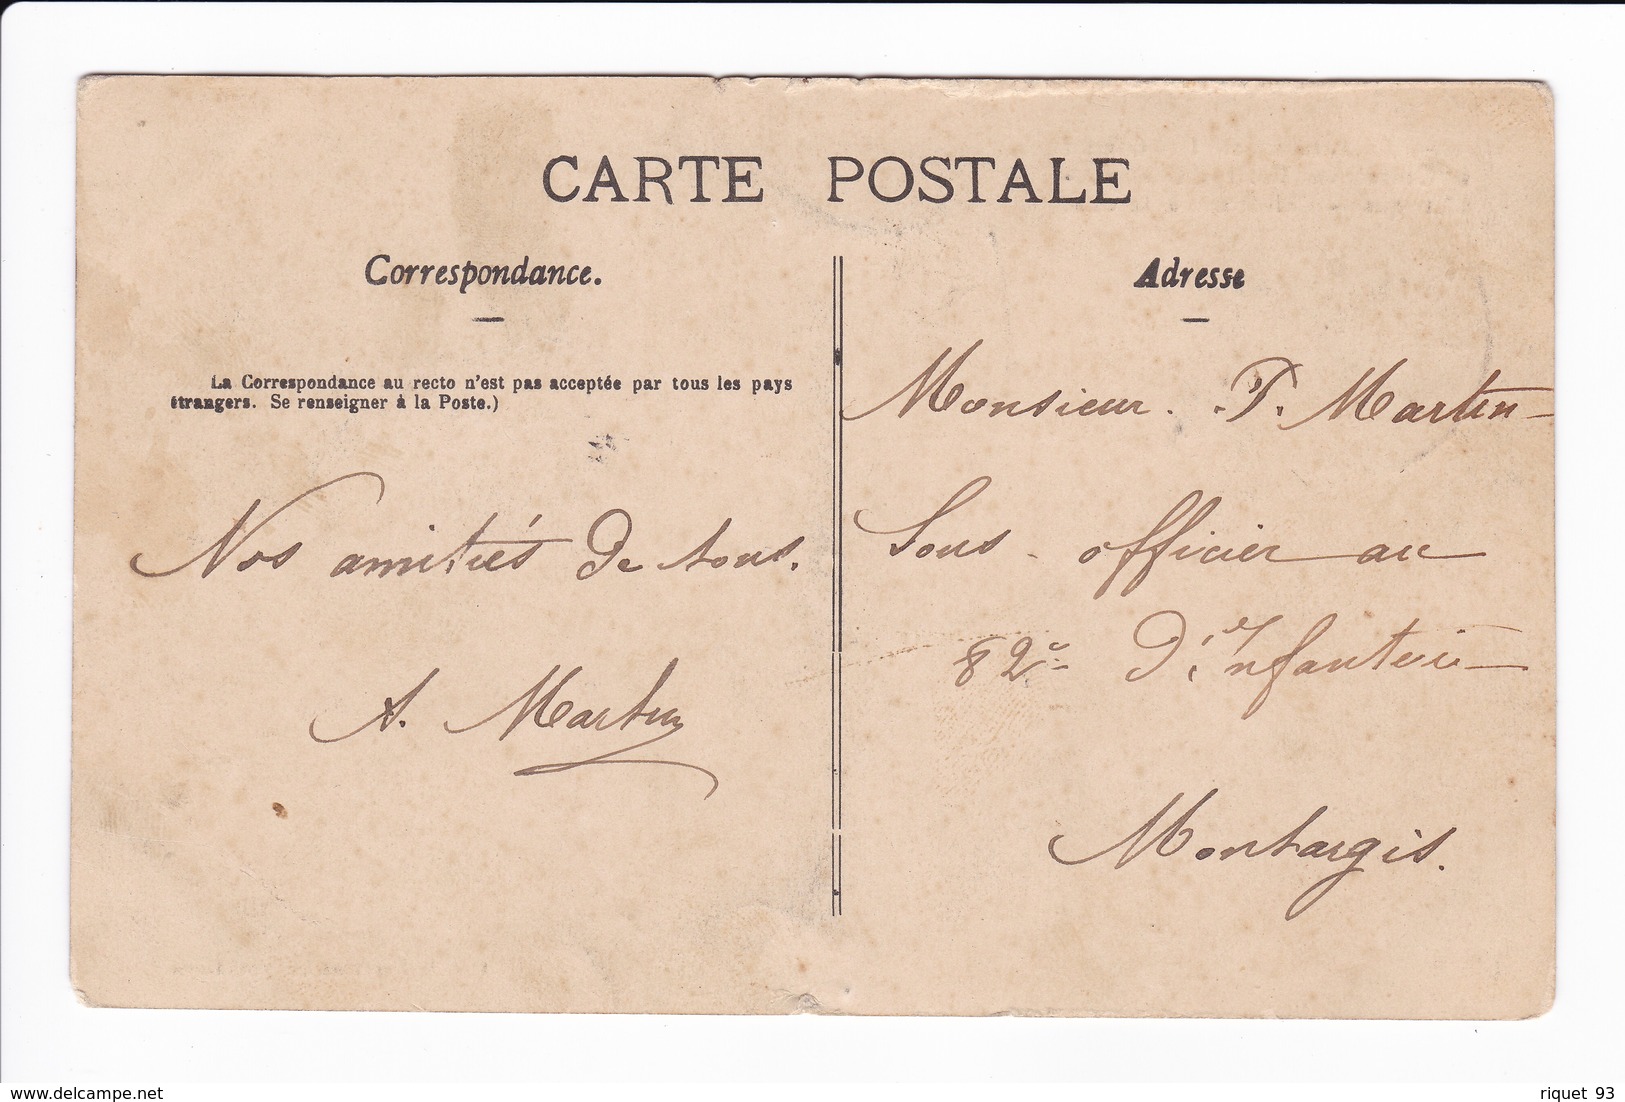 CARTE POSTALE
Correspondance.
La Correspondance au recto n'est pas acceptée par tous les pays
étrangers. Se renseigner à la Poste.)
Nos amitiés de tous.
A. Martin
Adresse
Monsieur. P. Martin
Sous-officier au
82e d'Infanterie
Montargis.
www.delcampe.net
riquet 93